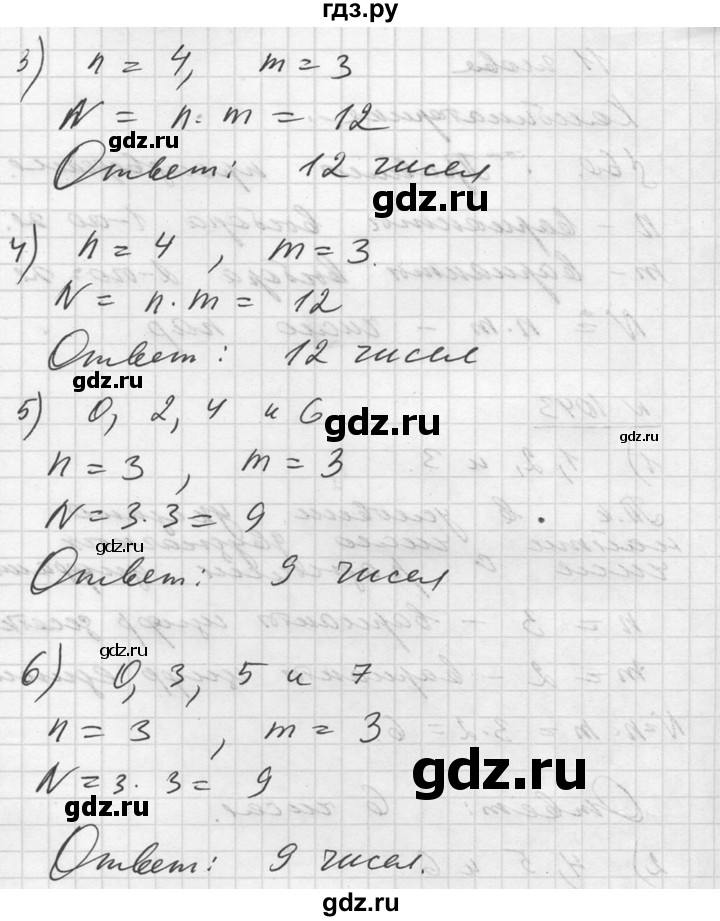 гдз.ру
3) n = 4, m = 3
N = n · m = 12
gdz.ru
Ответ: 12 чисел
gdz.ru
4) n = 4, m = 3.
N = n · m = 12
Ответ: 12 чисел
gdz.ru
5) 0, 2, 4 и 6
gdz.ru
gdz.ru
n = 3, m = 3
N = 3 · 3 = 9
gdz.ru
Ответ: 9 чисел
gdz.ru
6) 0, 3, 5 и 7
n = 3, m = 3
N = 3 · 3 = 9
gdz.ru
gdz.ru
Ответ: 9 чисел.
gdz.ru